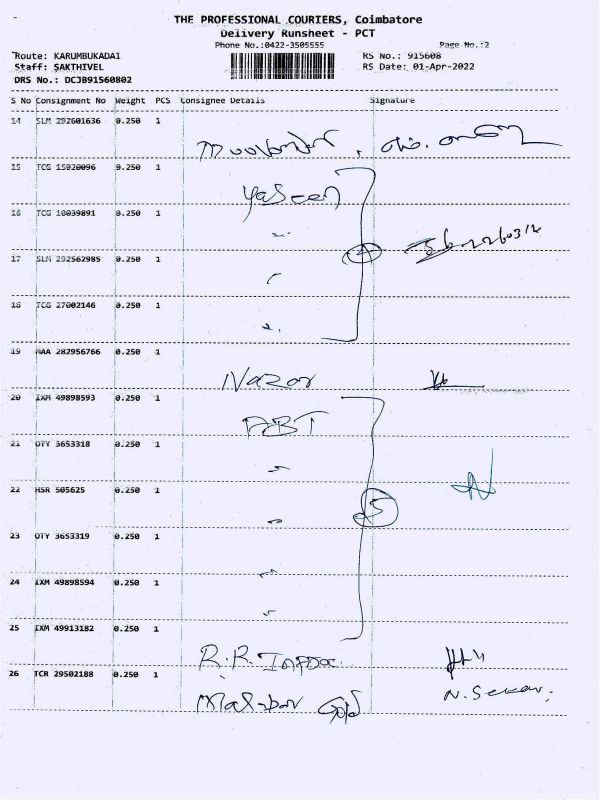 THE PROFESSIONAL COURIERS, Coimbatore
Delivery Runsheet - PCT
Phone No.:0422-3505555 Page No.:2
Route: KARUMBUKADAI RS No.: 915608
Staff: SAKTHIVEL RS Date: 01-Apr-2022
DRS No.: DCJB91560802
S No Consignment No Weight PCS Consignee Details Signature
14 SLM 292601636 0.250 1
15 TCG 15020096 0.250 1
Yaseen
16 TCG 10039891 0.250 1
4
17 SLM 292562985 0.250 1
18 TCG 27002146 0.250 1
19 MAA 282956766 0.250 1
Nazor
20 IXM 49898593 0.250 1
ABT
21 OTY 3653318 0.250 1
22 HSR 505625 0.250 1
5
23 OTY 3653319 0.250 1
24 IXM 49898594 0.250 1
25 IXM 49913182 0.250 1
R.R.
26 TCR 29502188 0.250 1
Malabar Gold N. Sekar.